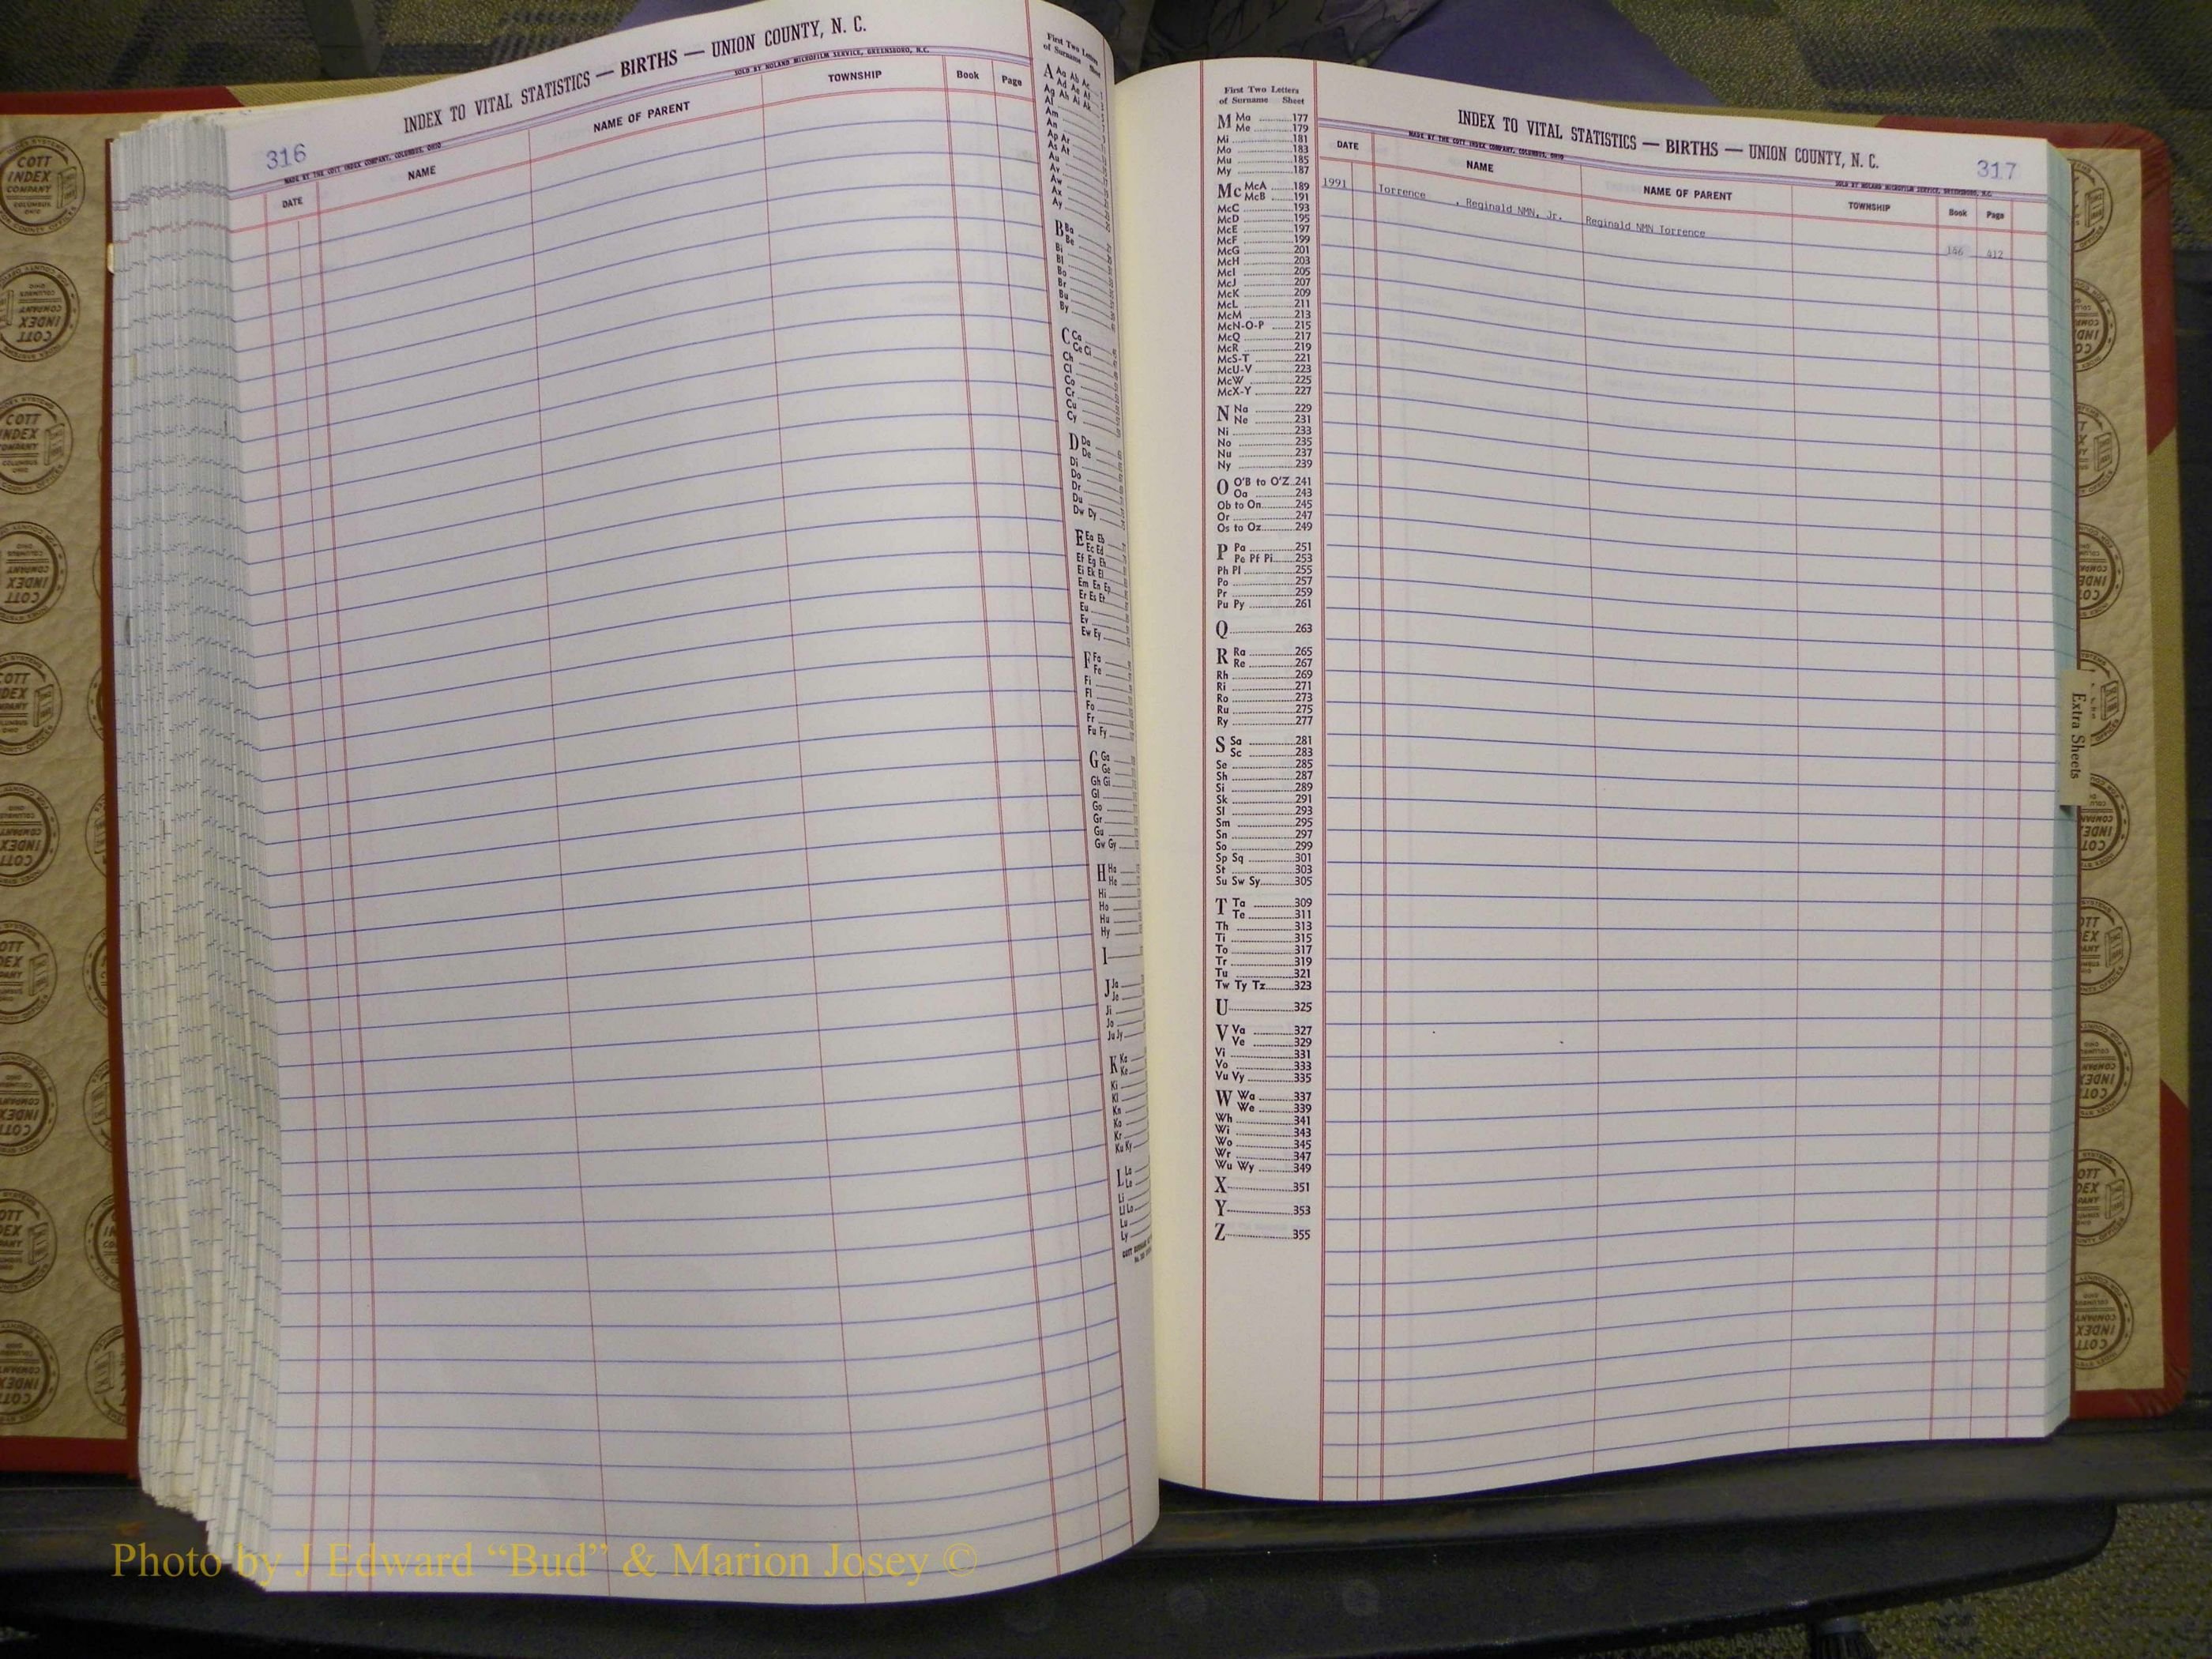 316
INDEX TO VITAL STATISTICS — BIRTHS — UNION COUNTY, N. C.
MADE BY THE COTT INDEX COMPANY, COLUMBUS, OHIO
SOLD BY NOLAND MICROFILM SERVICE, GREENSBORO, N.C.
DATE NAME NAME OF PARENT TOWNSHIP Book Page
First Two Letters
of Surname Sheet
A Aa Ab Ac
Ad Ae Af
Ag Ah Ai Ak
Al
Am
An
Ap Ar
As At
Au
Av
Aw
Ax
Ay
B Ba
Be
Bi
Bl
Bo
Br
Bu
By
C Ca
Ce Ci
Ch
Cl
Co
Cr
Cu
Cy
D Da
De
Di
Do
Dr
Du
Dw Dy
E Ea Eb
Ec Ed
Ef Eg Eh
Ei Ek El
Em En Ep
Er Es Et
Eu
Ev
Ew Ey
F Fa
Fe
Fi
Fl
Fo
Fr
Fu Fy
G Ga
Ge
Gh Gi
Gl
Go
Gr
Gu
Gw Gy
H Ha
He
Hi
Ho
Hu
Hy
I
J Ja
Je
Ji
Jo
Ju Jy
K Ka
Ke
Ki
Kl
Kn
Ko
Kr
Ku Ky
L La
Le
Li
Ll Lo
Lu
Ly
First Two Letters
of Surname Sheet
M Ma 177
Me 179
Mi 181
Mo 183
Mu 185
My 187
Mc McA 189
McB 191
McC 193
McD 195
McE 197
McF 199
McG 201
McH 203
McI 205
McJ 207
McK 209
McL 211
McM 213
McN-O-P 215
McQ 217
McR 219
McS-T 221
McU-V 223
McW 225
McX-Y 227
N Na 229
Ne 231
Ni 233
No 235
Nu 237
Ny 239
O O'B to O'Z 241
Oa 243
Ob to On 245
Or 247
Os to Oz 249
P Pa 251
Pe Pf Pi 253
Ph Pl 255
Po 257
Pr 259
Pu Py 261
Q 263
R Ra 265
Re 267
Rh 269
Ri 271
Ro 273
Ru 275
Ry 277
S Sa 281
Sc 283
Se 285
Sh 287
Si 289
Sk 291
Sl 293
Sm 295
Sn 297
So 299
Sp Sq 301
St 303
Su Sw Sy 305
T Ta 309
Te 311
Th 313
Ti 315
To 317
Tr 319
Tu 321
Tw Ty Tz 323
U 325
V Va 327
Ve 329
Vi 331
Vo 333
Vu Vy 335
W Wa 337
We 339
Wh 341
Wi 343
Wo 345
Wr 347
Wu Wy 349
X 351
Y 353
Z 355
INDEX TO VITAL STATISTICS — BIRTHS — UNION COUNTY, N. C.
317
MADE BY THE COTT INDEX COMPANY, COLUMBUS, OHIO
SOLD BY NOLAND MICROFILM SERVICE, GREENSBORO, N.C.
DATE NAME NAME OF PARENT TOWNSHIP Book Page
1991 Torrence , Reginald NMN, Jr. Reginald NMN Torrence 146 412
Extra Sheets
COTT
INDEX
COMPANY
COLUMBUS
OHIO
Photo by J Edward “Bud” & Marion Josey ©